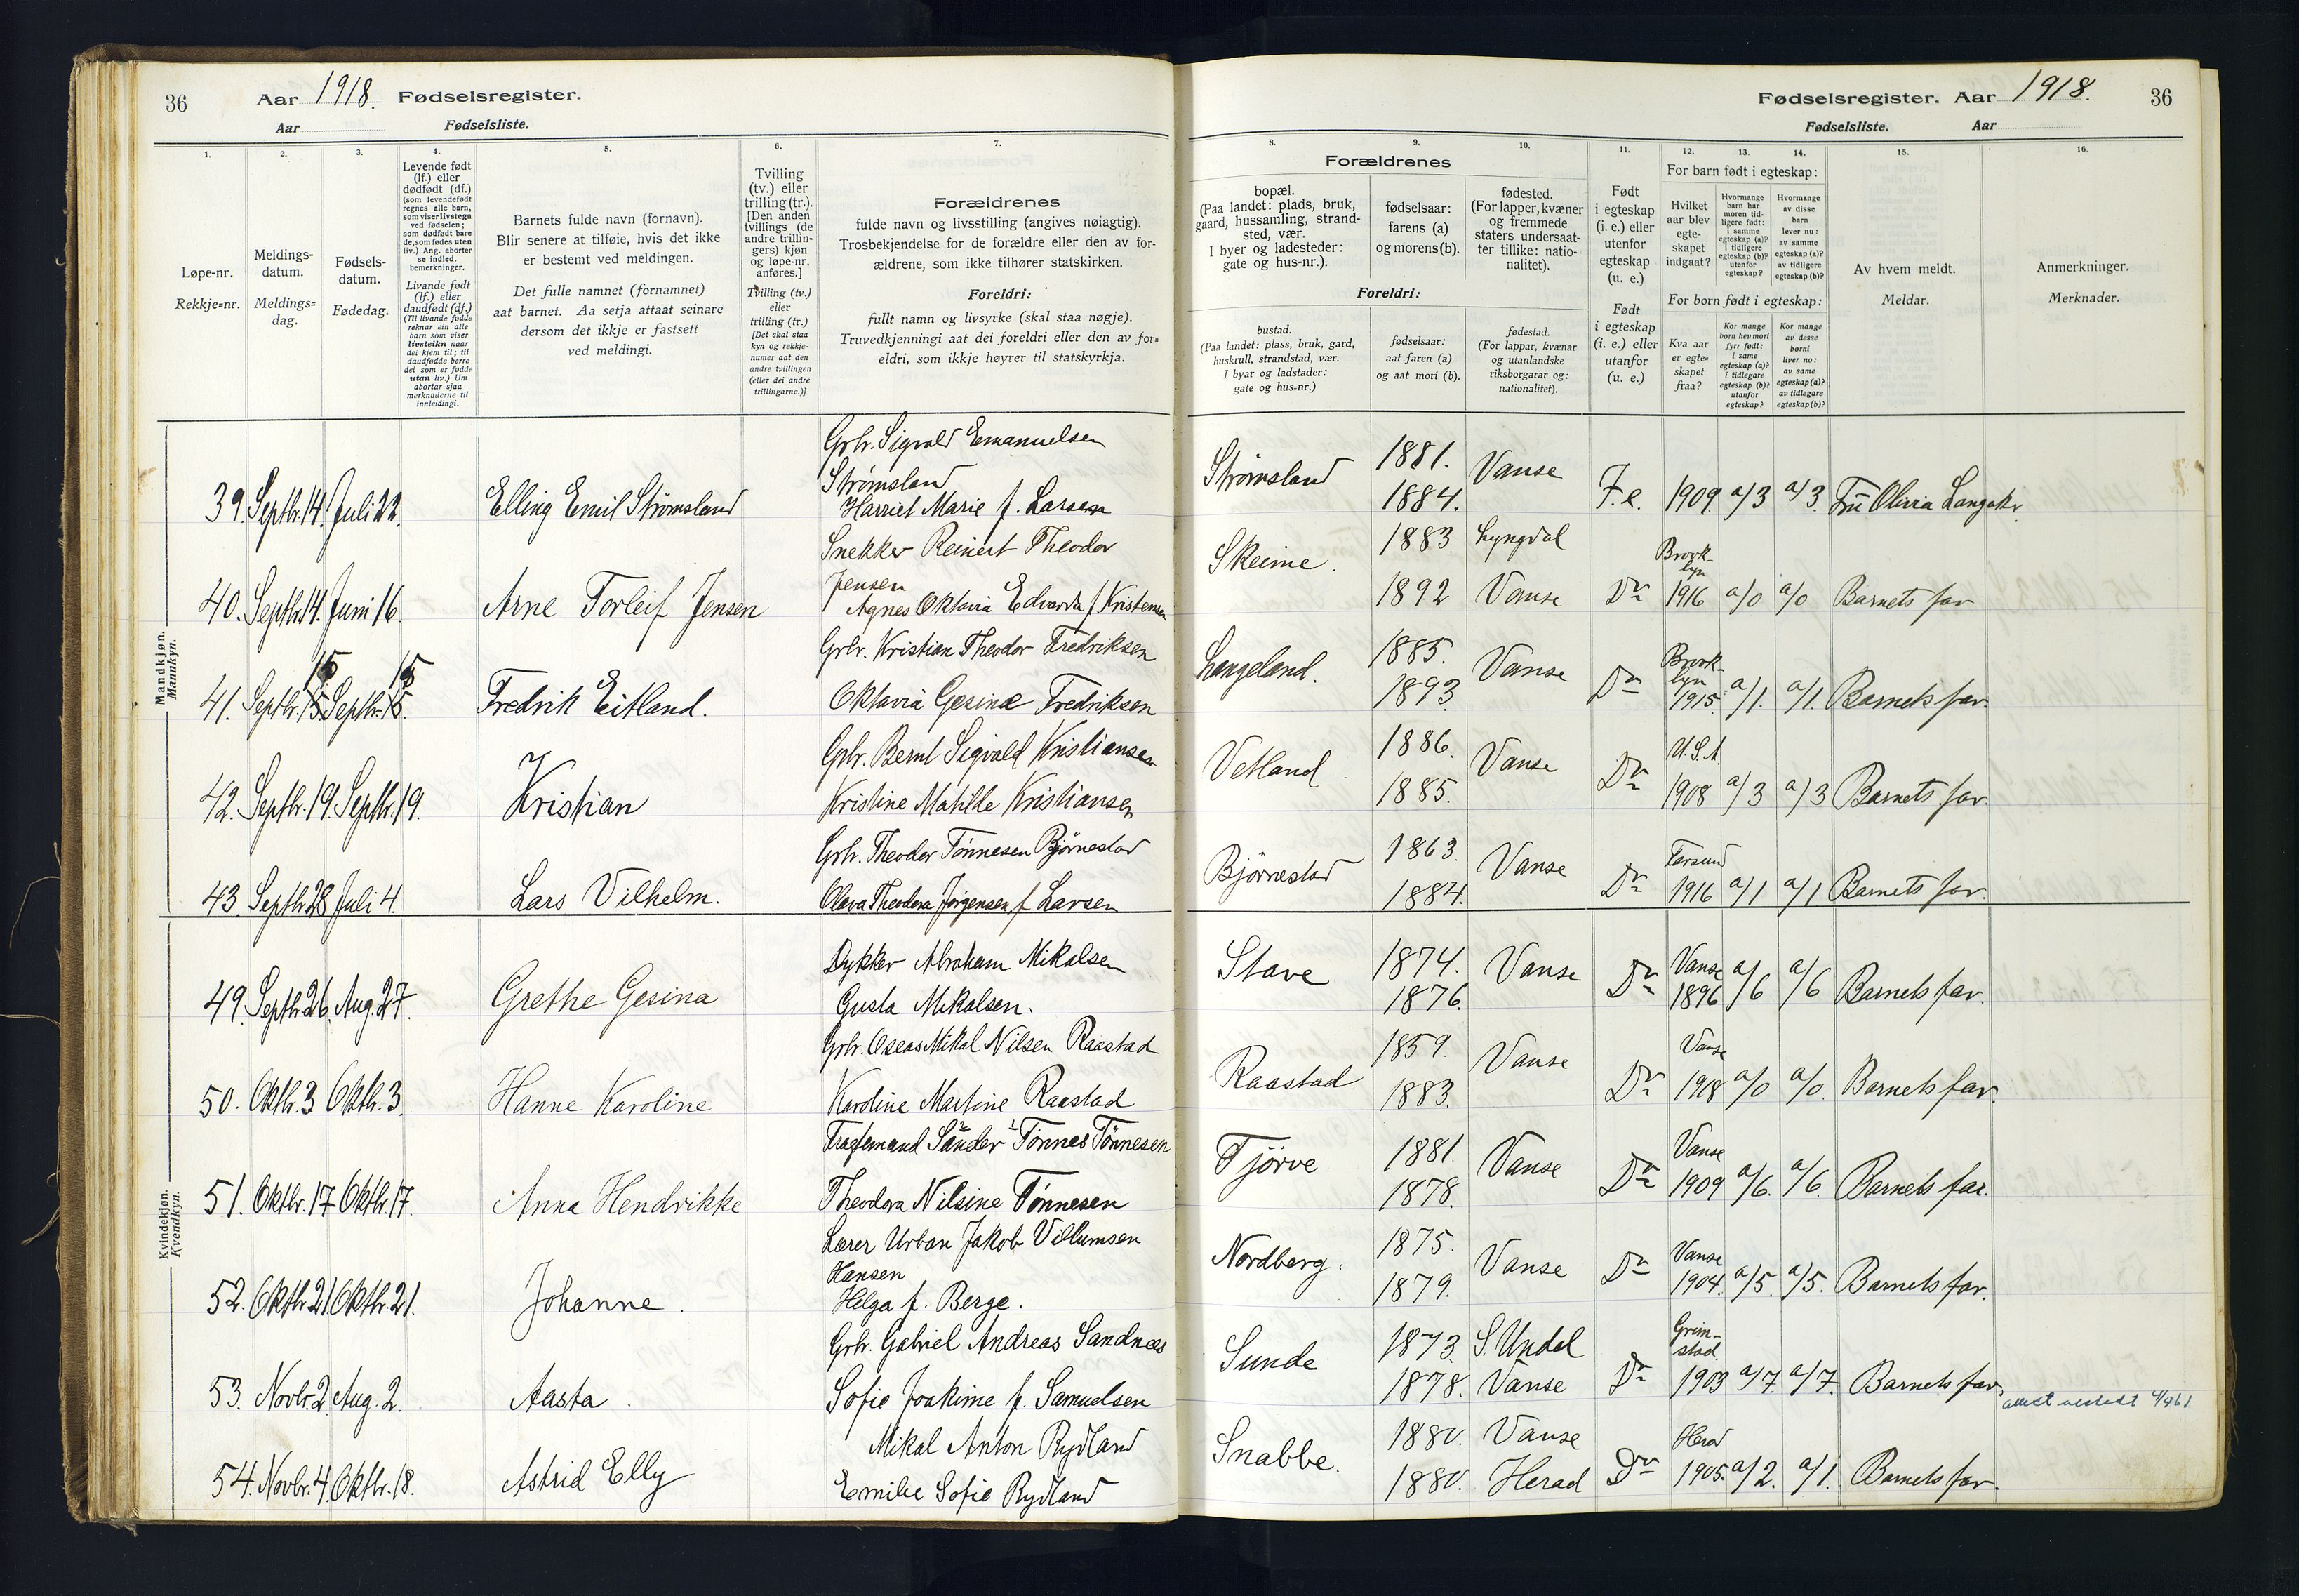 36
Aar 1918. Fødselsregister.
Aar Fødselsliste.
1. 2. 3. 4. 5. 6. 7.
Løpe-nr.
Rekkje=nr.
Meldings-
datum.
Meldings=
dag.
Fødsels-
datum.
Fødedag.
Levende født
(lf.) eller
dødfødt (df.)
(som levendefødt
regnes alle barn,
som viser livstegn
ved fødselen;
som dødfødt bare
de, som fødes uten
liv.) Ang. aborter
se indled.
bemerkninger.
Livande født
(lf.) eller
daudfødt (df.)
(Til livande fødde
reknar ein alle
barn som viser
livsteikn naar
dei kjem til; til
daudfødde berre
dei som er fødde
utan liv.) Um
abortar sjaa
merknaderne til
innleidingi.
Barnets fulde navn (fornavn).
Blir senere at tilføie, hvis det ikke
er bestemt ved meldingen.
Det fulle namnet (fornamnet)
aat barnet. Aa setja attaat seinare
dersom det ikkje er fastsett
ved meldingi.
Tvilling
(tv.) eller
trilling (tr.).
[Den anden
tvillings (de
andre trillin-
gers) kjøn
og løpe-nr.
anføres.]
Tvilling (tv.)
eller
trilling (tr.)
[Det skal staa
kyn og rekkje-
numer aat den
andre tvillingen
(eller dei andre
trillingarne.)]
Forældrenes
fulde navn og livsstilling (angives nøiagtig).
Trosbekjendelse for de forældre eller den av for-
ældrene, som ikke tilhører statskirken.
Foreldri:
fullt namn og livsyrke (skal staa nøgje).
Truvedkjenningi aat dei foreldri eller den av for=
eldri, som ikkje høyrer til statskyrkja.
Mandkjøn.
Mannkyn.
Grbr. Sigvald Emanuelsen
Strømsland
39. Septbr. 14. Juli 22. Elling Emil Strømsland Harriet Marie f. Larsen
Snekker Reinert Theodor
Jensen
40. Septbr. 14. Juni 16. Arne Torleif Jensen Agnes Oktavia Edvarda f. Kristensen
Grbr. Kristian Theodor Fredriksen
15 15
41. Septbr. 15. Septbr. 15. Fredrik Eitland. Oktavia Gesine Fredriksen
Grbr. Bernt Sigvald Kristiansen
42. Septbr. 19. Septbr. 19. Kristian Kristine Matilde Kristiansen
Grbr. Theodor Tönnesen Björnestad
43. Septbr. 28 Juli 4. Lars Vilhelm. Olava Theodora Jörgensen, f. Larsen
Kvindekjøn.
Kvendkyn.
Dykker Abraham Mikalsen
49. Septbr. 26. Aug. 27. Grethe Gesina Gusta Mikalsen.
Grbr. Oseas Mikal Nilsen Raastad
50. Oktbr. 3 Oktbr. 3. Hanne Karoline Karoline Martine Raastad
Fragtemand Sander 2 Tönnes 1 Tönnesen
51. Oktbr. 17 Oktbr. 17. Anna Hendrikke Theodora Nilsine Tönnesen
Lærer Urban Jakob Villumsen
Hansen
52. Oktbr. 21. Oktbr. 21. Johanne. Helga f. Berge.
Grbr. Gabriel Andreas Sandnes
53. Novbr. 2. Aug. 2. Aasta. Sofie Joakime f. Samuelsen
Mikal Anton Rydland
54. Novbr. 4. Oktbr. 18. Astrid Elly Emilie Sofie Rydland
Fødselsregister. Aar 1918. 36
Fødselsliste. Aar
8. 9. 10. 11. 12. 13. 14. 15. 16.
Forældrenes
bopæl.
(Paa landet: plads, bruk,
gaard, hussamling, strand-
sted, vær.
I byer og ladesteder:
gate og hus-nr.).
fødselsaar:
farens (a)
og morens (b).
fødested.
(For lapper, kvæner
og fremmede
staters undersaat-
ter tillike: natio-
nalitet).
Foreldri:
bustad.
(Paa landet: plass, bruk, gard,
huskrull, strandstad, vær.
I byar og ladstader:
gate og hus=nr.)
fødselsaar:
aat faren (a)
og aat mori (b).
fødestad.
(For lappar, kvænar
og utanlandske
riksborgarar og:
nationalitet).
Født
i egteskap
(i. e.) eller
utenfor
egteskap
(u. e.)
Født
i egteskap
(i. e.) eller
utanfor
(u. e.)
For barn født i egteskap:
Hvilket
aar blev
egte-
skapet
indgaat?
Hvormange
barn har
moren tid-
ligere født:
i samme
egteskap (a)?
i tidligere
egteskap (b)?
utenfor
egteskap?
Hvormange
av disse
barn
lever nu:
av samme
egteskap (a)?
av tidligere
egteskap (b)?
For born født i egteskap:
Kva aar
er egte=
skapet
fraa?
Kor mange
born hev mori
fyrr født:
i same
egteskap (a)?
i tidlegare
egteskap (b)?
utanfor
egteskap?
Kor mange
av desse
borni
liver no:
av same
egteskap (a)?
av tidlegare
egteskap (b)?
Av hvem meldt.
Meldar.
Anmerkninger.
Merknader.
Strömsland 1881. 1884. Vanse I. e. 1909. a/3 a/3. Fru Olivia Langaker
Skeime. 1883. Lyngdal
1892 Vanse Do Brook-
lyn
1916 a/0 a/0 Barnets far
Langeland. 1885. 1893. Vanse Do Brook-
lyn
1915. a/1. a/1. Barnets far.
Vetland 1886. 1885. Vanse Do U.S.A.
1908 a/3 a/3 Barnets far.
Björnestad 1863. 1884. Vanse Do Farsund
1916 a/1 a/1 Barnets far.
Stave 1874. 1876. Vanse Do Vanse
1896 a/6 a/6 Barnets far.
Raastad 1859. 1883. Vanse Do Vanse
1918 a/0 a/0. Barnets far.
Tjörve 1881. 1878. Vanse Do Vanse
1909 a/6. a/6. Barnets far.
Nordberg. 1875. 1879. Vanse Do Vanse
1904. a/5. a/5. Barnets far.
Sunde 1873. S. Undal
1878. Vanse Do Grim-
stad
1903 a/7. a/7. Barnets far.
attest 4/961
Snabbe. 1880. Vanse
1880. Herad Do Herad
1905. a/2. a/1. Barnets far.